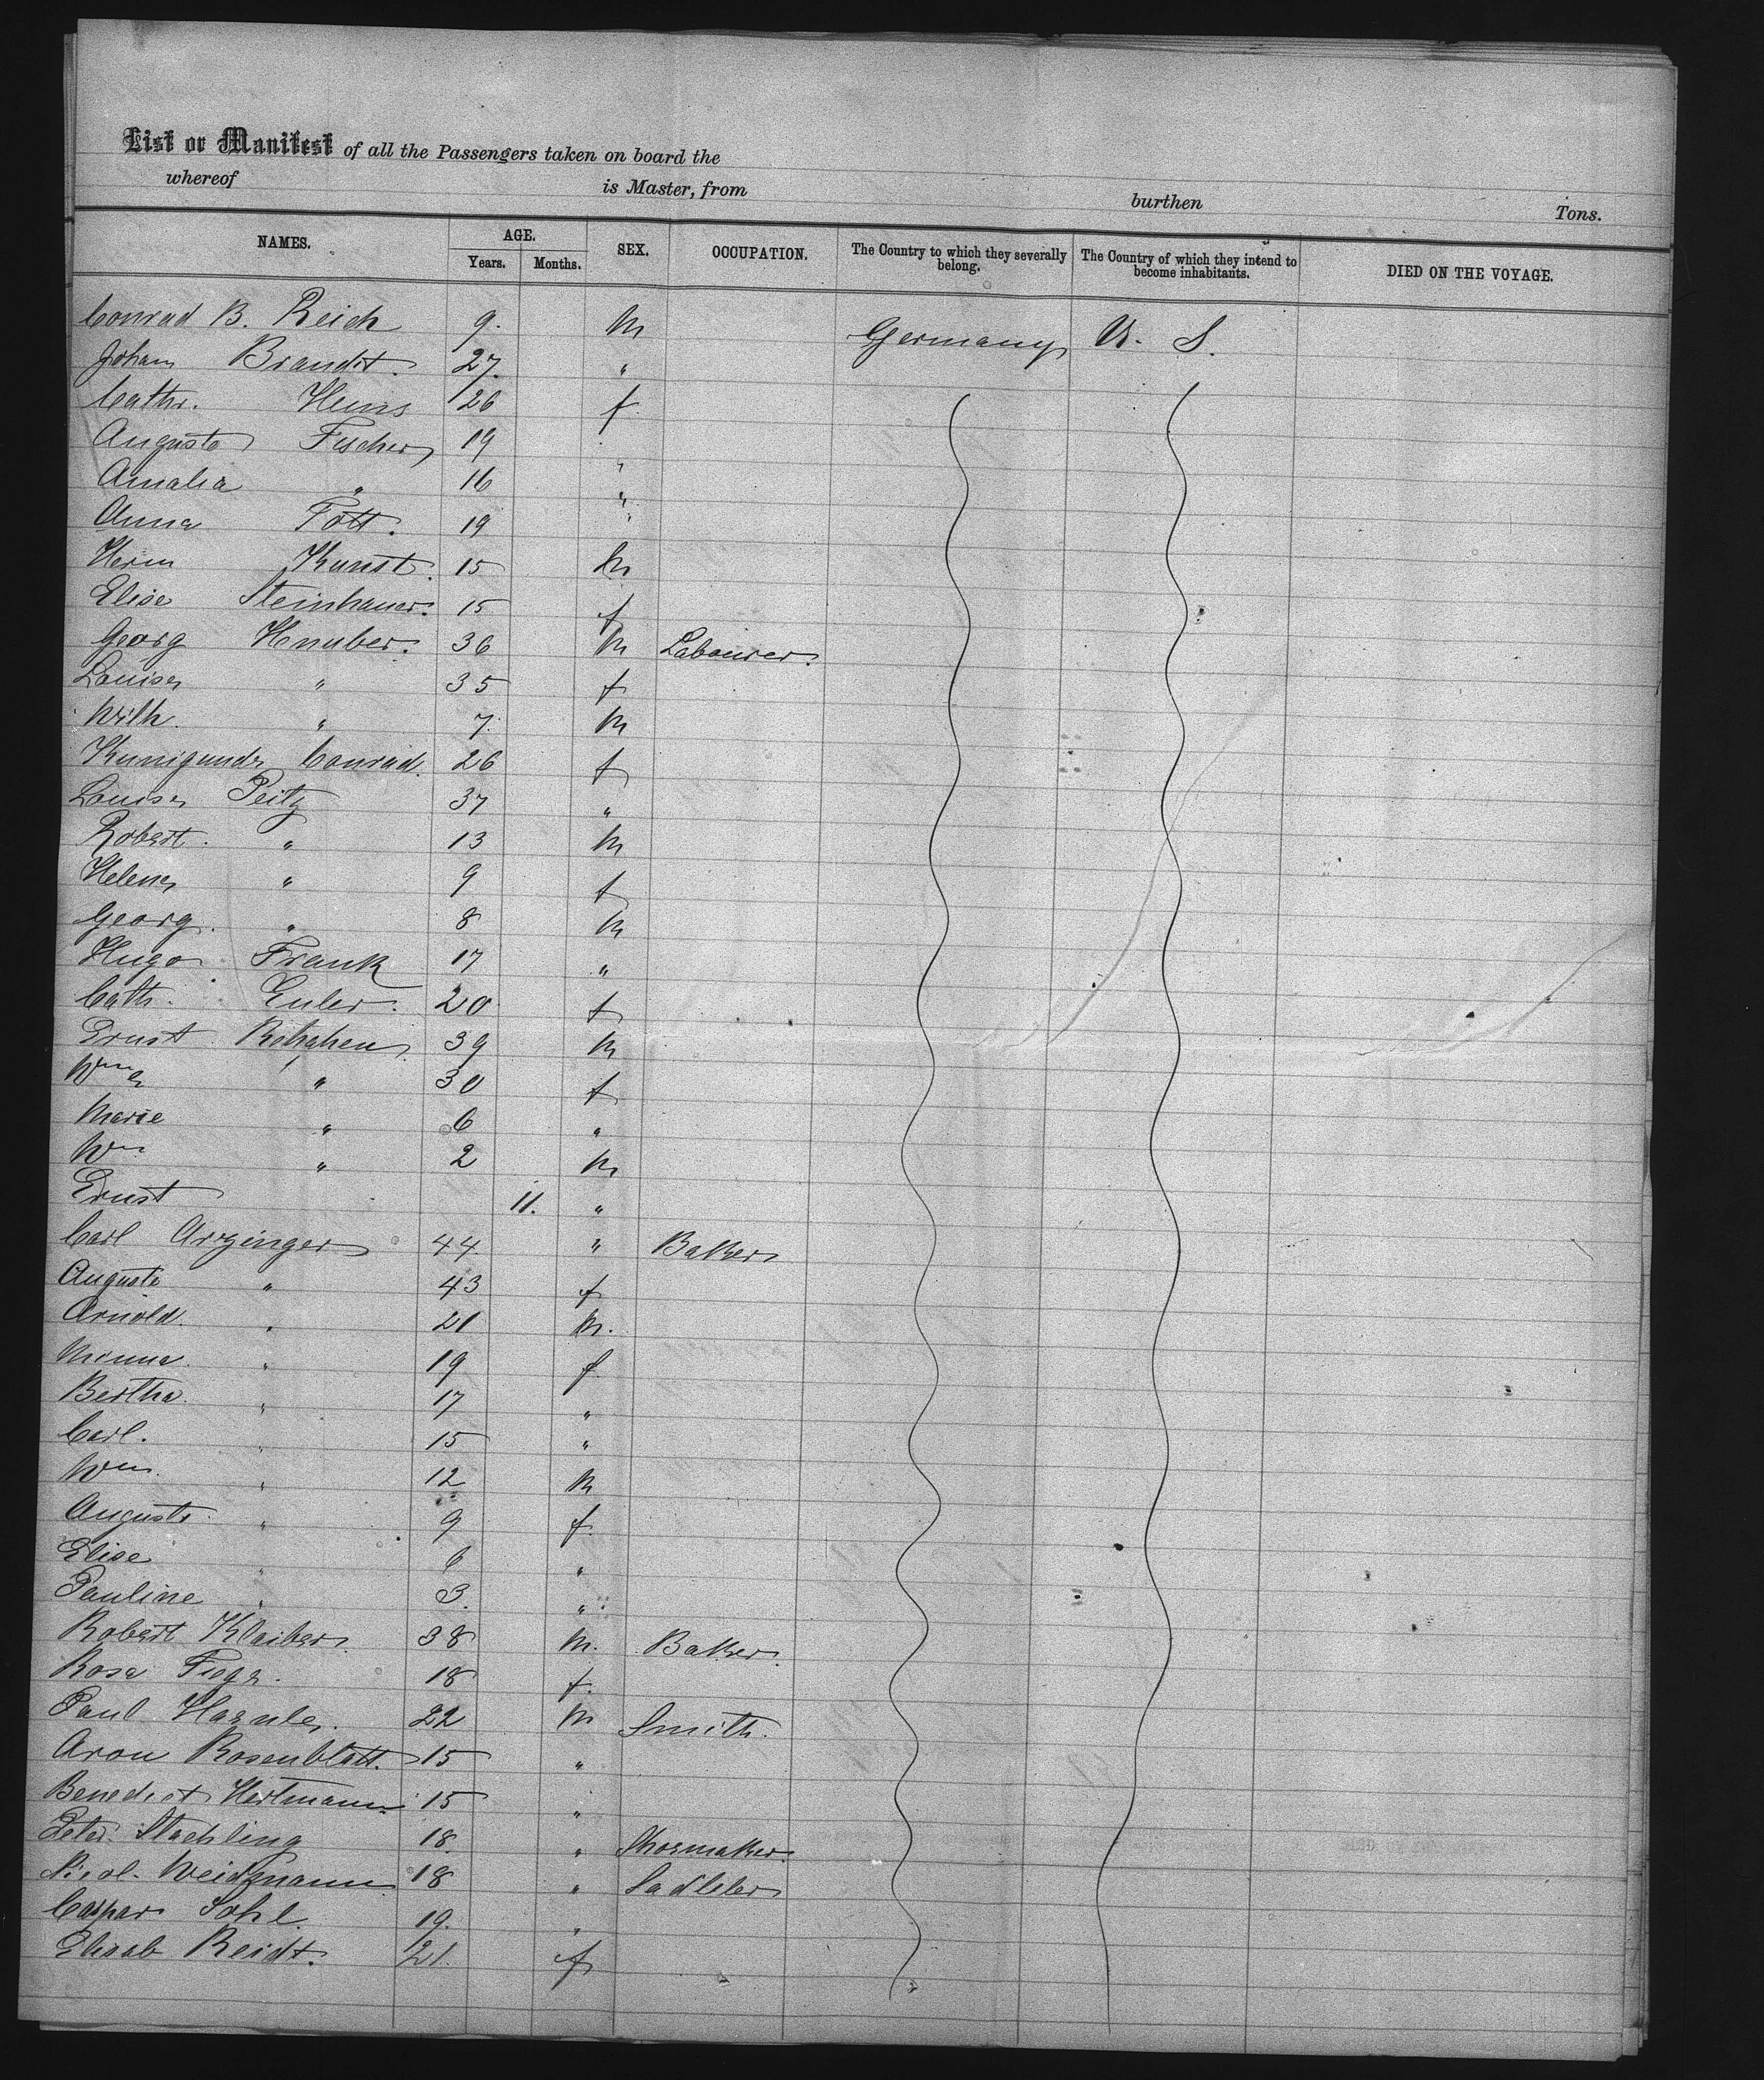 List or Manifest of all the Passengers taken on board the
whereof is Master, from burthen Tons.
NAMES. AGE. Years. Months. SEX. OCCUPATION. The Country to which they severally belong. The Country of which they intend to become inhabitants. DIED ON THE VOYAGE.
Conrad B. Reich 9. M Germany U. S.
Johan Brandt. 27. "
Cathr. Heins 26 f
Auguste Fischer 19 "
Amalia " 16 "
Anna Pott. 19 "
Herm Kunst. 15 M
Elise Steinhauer. 15 f
Georg Hnuber. 36 M Labourer.
Louise " 35 f
Wilh. " 7. M
Kunigunde Conrad. 26 f
Louise Peitz 37 "
Robert. " 13 M
Helene " 9 f
Georg. " 8 M
Hugo Frank 17 "
Cath. Euler. 20 f
Ernst 39 M
Wme " 30 f
Marie " 6 "
Wm " 2 M
Ernst 11. "
Carl Arzinger 44 " Baker
Auguste " 43 f
Arnold. " 21 M.
Minna. " 19 f
Bertha. " 17 "
Carl. " 15 "
Wm. " 12 M
Auguste. " 9 f.
Elise " 6 "
Pauline " 3. "
Robert Klaiber. 38 M. Baker.
Rosa 18 f.
Paul 22 M Smith.
Aron Rosenblatt. 15 "
Benedict Hertmann 15 "
Peter. Staehling 18. " Shoemaker.
Nicol. Weidmann 18 " Sadleler
Caspar Sohl. 19. "
Elisab Reidt. 21. f